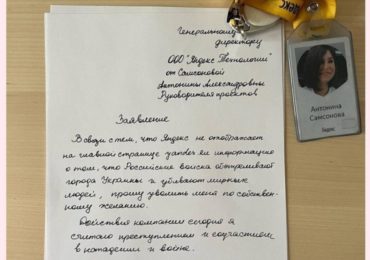 Генеральному
директору
ООО "Яндекс Технологии"
от Самсоновой
Антонины Александровны
Руководителя проектов
Заявление
В связи с тем, что Яндекс не отображает
на главной странице yandex.ru информацию
о том, что Российские войска обстреливают
города Украины и убивают мирных
людей, прошу уволить меня по собствен-
ному желанию.
Действия компании сегодня я
считаю преступлением и соучастием
в нападении и войне.
Антонина
Самсонова
Яндекс